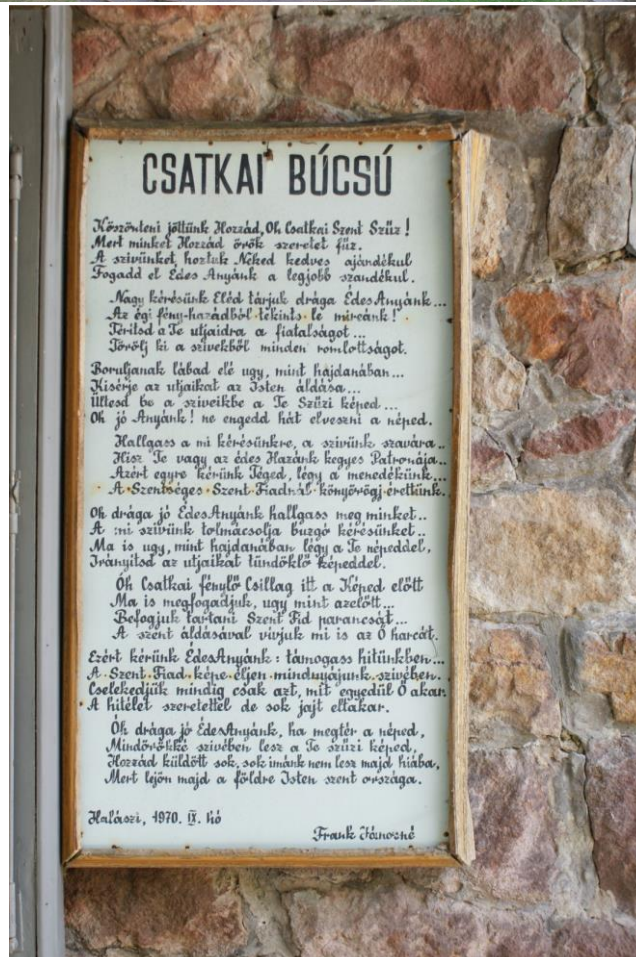 CSATKAI BÚCSÚ
Köszönteni jöttünk Hozzád, Oh Csatkai Szent Szűz!
Mert minket Hozzád örök szeretet fűz.
A szivünket, hoztuk Néked kedves ajándékul
Fogadd el Édes Anyánk a legjobb szándékul.
Nagy kérésünk Eléd tárjuk drága ÉdesAnyánk...
Az égi fény-hazádból tekints le mireánk!
Téritsd a Te utjaidra a fiatalságot...
Törölj ki a szivekből minden romlottságot.
Boruljanak lábad elé ugy, mint hajdanában...
Kisérje az utjaikat az Isten áldása...
Ültesd be a sziveikbe a Te Szűzi képed...
Oh jó Anyánk! ne engedd hát elveszni a néped.
Hallgass a mi kérésünkre, a szivünk szavára..
Hisz Te vagy az édes Hazánk kegyes Patronája..
Azért egyre kérünk Téged, légy a menedékünk...
A Szentséges Szent Fiadnál könyörögj érettünk.
Oh drága jó ÉdesAnyánk hallgass meg minket..
A mi szivünk tolmácsolja buzgó kérésünket..
Ma is ugy, mint hajdanában légy a Te népeddel,
Irányitsd az utjaikat tündöklő képeddel.
Óh Csatkai fénylő Csillag itt a Képed előtt
Ma is megfogadjuk, ugy mint azelőtt...
Befogjuk tartani Szent Fid parancsát...
A szent áldásával vivjuk mi is az Ő harcát.
Ezért kérünk ÉdesAnyánk: támogass hitünkben...
A Szent Fiad képe éljen mindnyájunk szivében.
Cselekedjük mindig csak azt, mit egyedül Ő akar.
A hitélet szeretettel de sok jajt eltakar.
Óh drága jó ÉdesAnyánk, ha megtér a néped,
Mindörökké szivében lesz a Te szűzi képed,
Hozzád küldött sok, sok imánk nem lesz majd hiába,
Mert lejön majd a földre Isten szent országa.
Halászi, 1970. IX. hó
Frank Jánosné